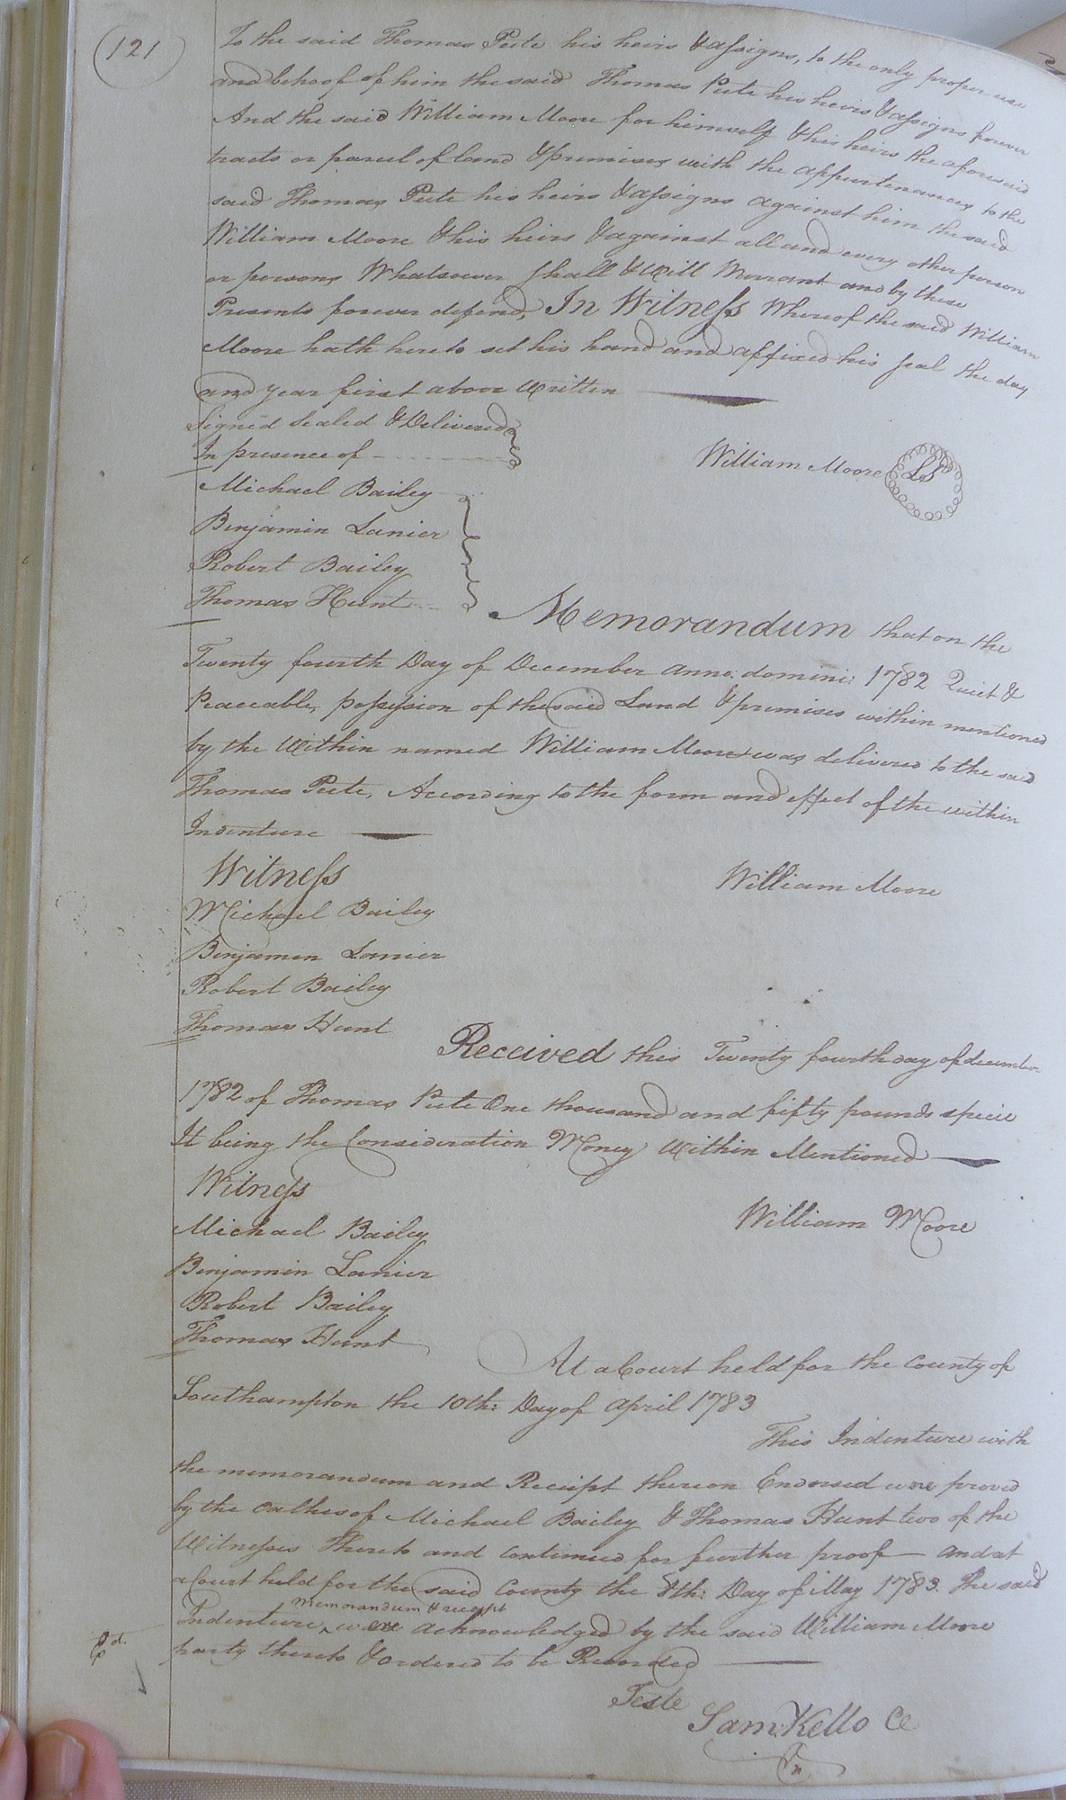 121
To the said Thomas Pete his heirs & assigns, to the only proper use
and behoof of him the said Thomas Pete his heirs & assigns forever
And the said William Moore for himself & his heirs the aforesaid
tracts or parcel of land & premises with the appurtenances to the
said Thomas Pete his heirs & assigns against him the said
William Moore & his heirs & against all and every other person
or persons Whatsoever shall & will Warrant and by these
Presents forever defend, In Witness Whereof the said William
Moore hath hereto set his hand and affixed his seal the day
and year first above Written
Signed Sealed & Delivered
In presence of
William Moore LS
Michael Bailey
Benjamin Lanier
Robert Bailey
Thomas Hunt
Memorandum that on the
Twenty fourth Day of December anno: domini: 1782 Quiet &
Peaceable, possession of the said Land & premises within mentioned
by the Within named William Moore was delivered to the said
Thomas Pete, According to the form and effect of the within
Indenture
Witness
William Moore
Michael Bailey
Benjamen Lanier
Robert Bailey
Thomas Hunt
Received this Twenty fourth day of december
1782 of Thomas Pete One thousand and fifty pounds specie
It being the Consideration Money Within Mentioned
Witness
William Moore
Michael Bailey
Benjamin Lanier
Robert Bailey
Thomas Hunt
At a Court held for the County of
Southampton the 10th: Day of April 1783
This Indenture with
the memorandum and Receipt thereon Endorsed were proved
by the oathes of Michael Bailey & Thomas Hunt two of the
Witnesses Thereto and continued for further proof and at
a Court held for the said County the 8th: Day of May 1783. The said
memorandum & receipt
Indenture were acknowledged by the said William Moore
party thereto & ordered to be Recorded
Teste
Sam. Kello Cl